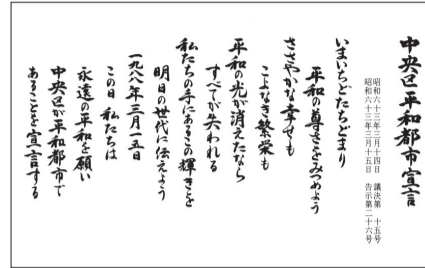 中央区平和都市宣言
昭和六十三年三月十四日　議決第　十五号
昭和六十三年三月十五日　告示第二十六号
いまいちどたちどまり
平和の尊さをみつめよう
ささやかな幸せも
こよなき繁栄も
平和の光が消えたなら
すべてが失われる
私たちの手にあるこの輝きを
明日の世代に伝えよう
一九八八年三月一五日
この日　私たちは
永遠の平和を願い
中央区が平和都市で
あることを宣言する